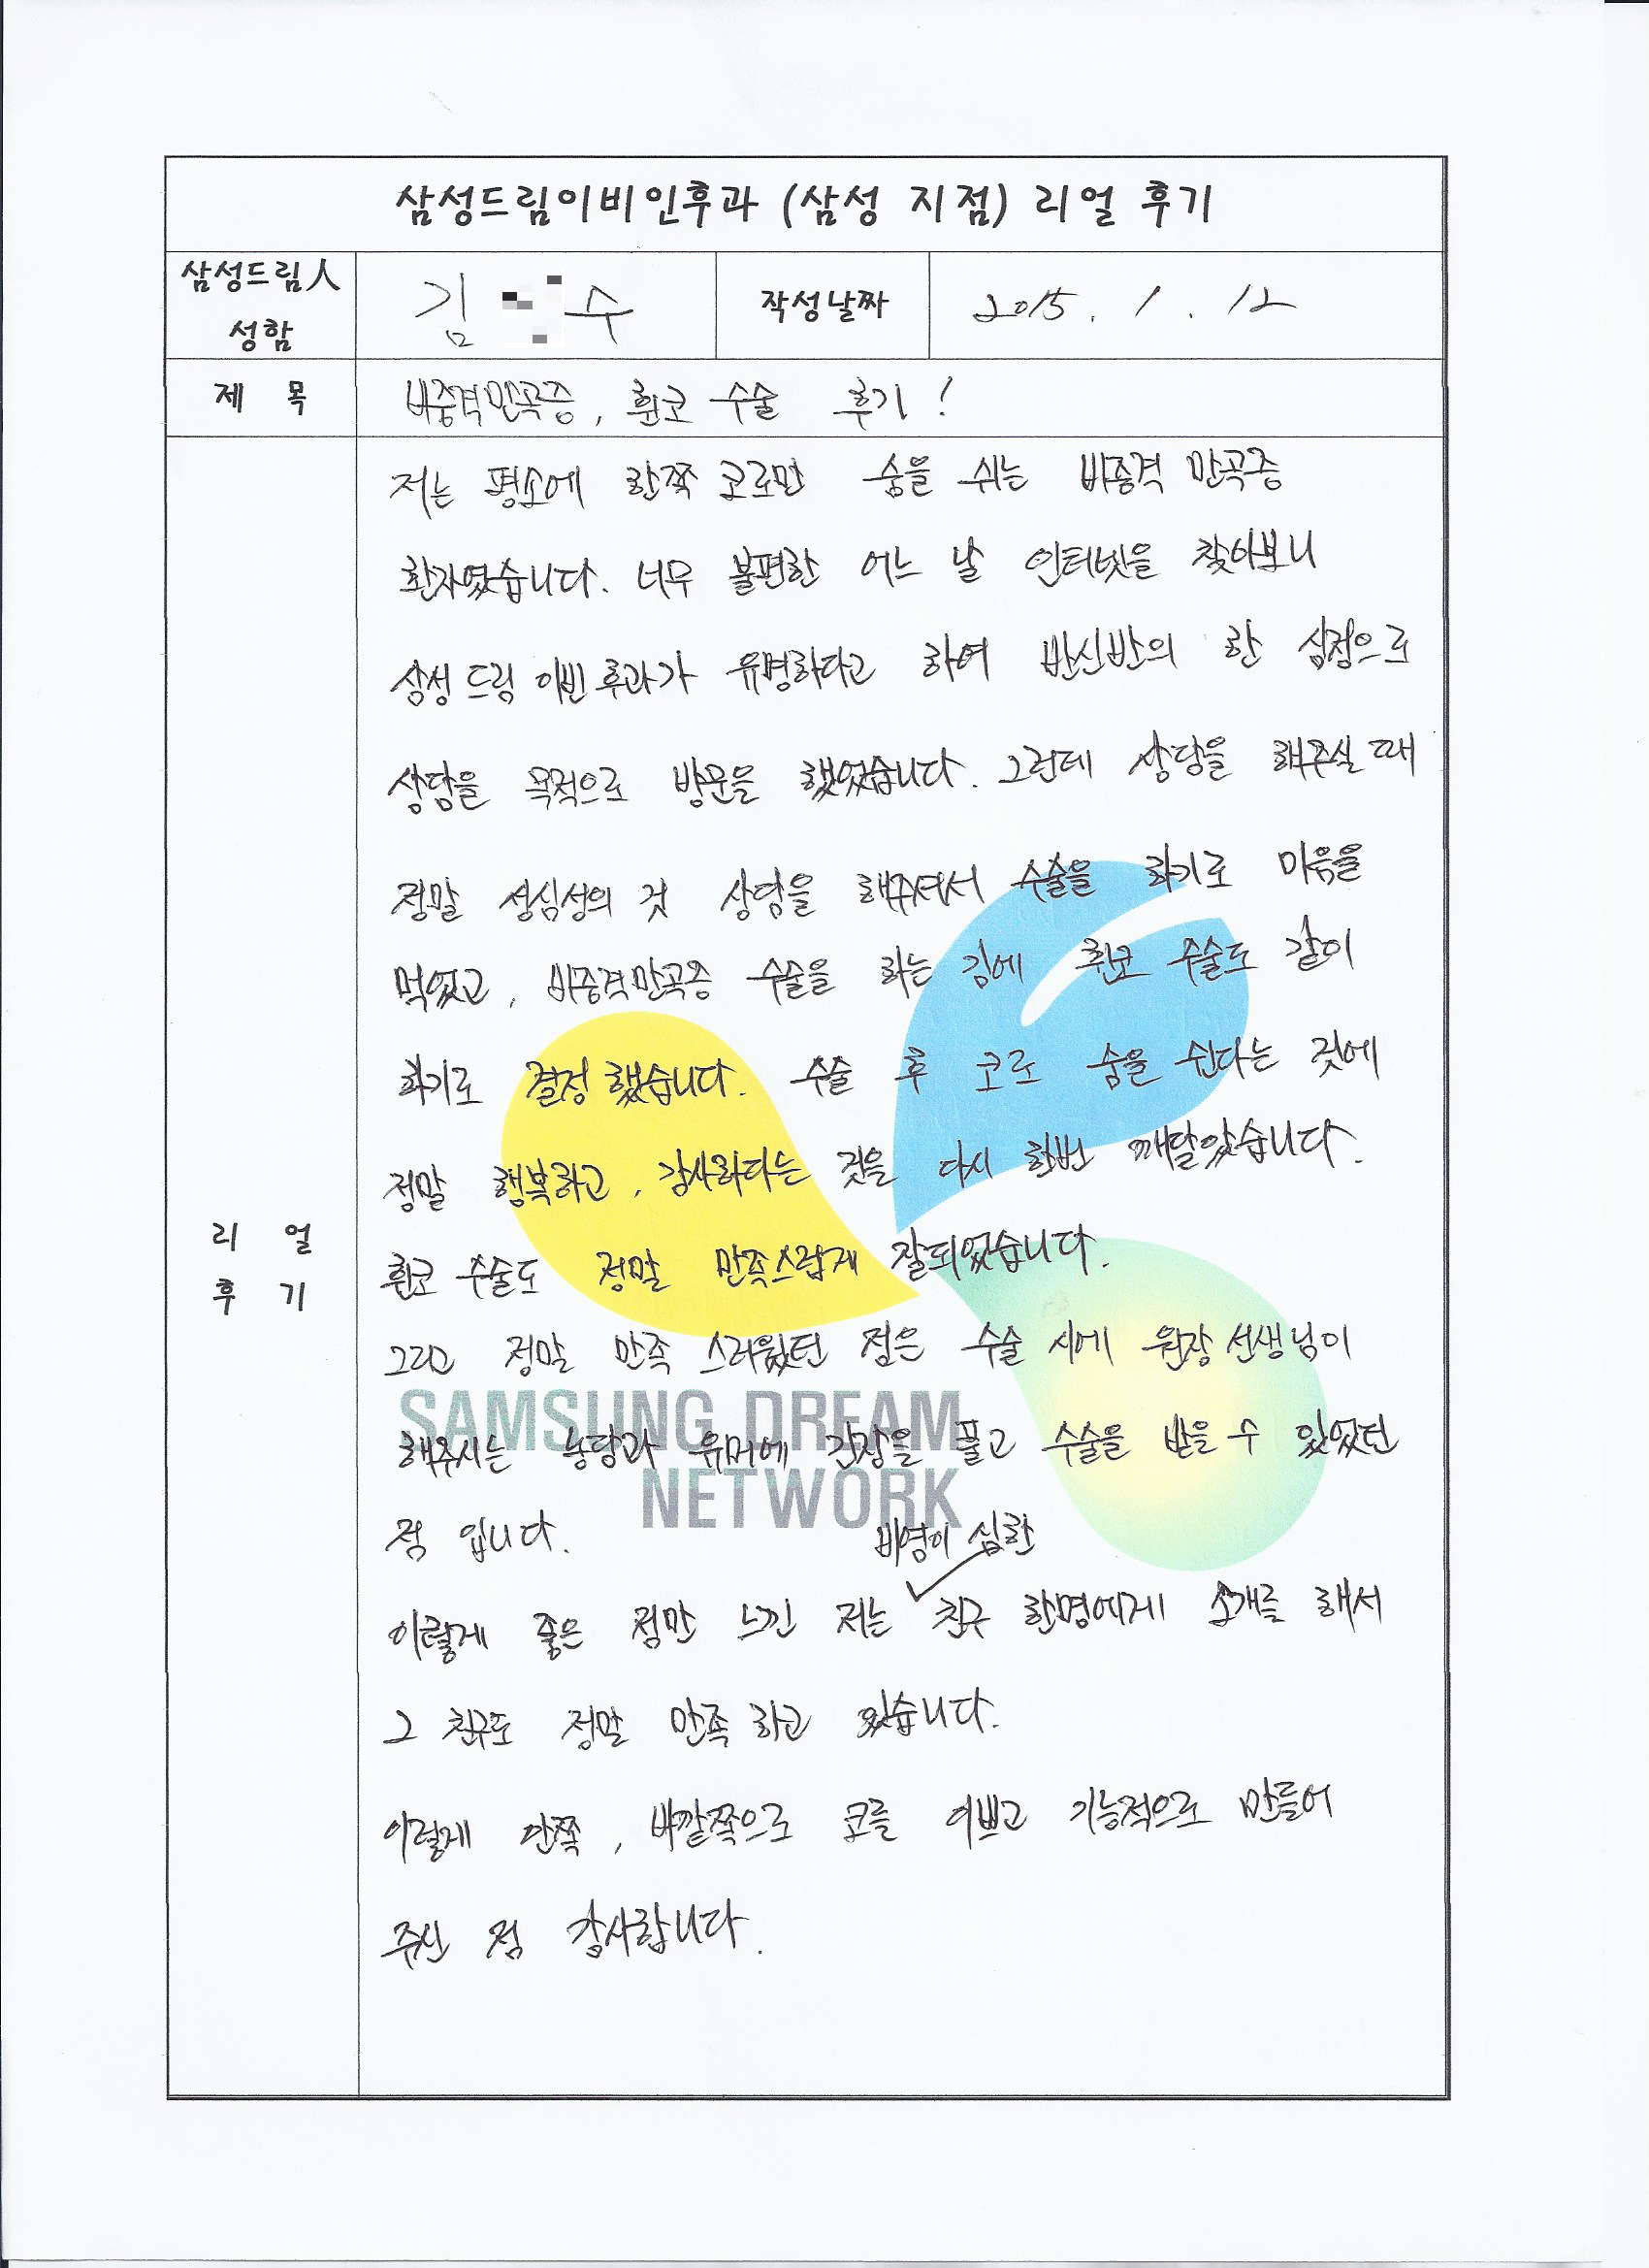 삼성드림이비인후과 (삼성 지점) 리얼 후기
삼성드림人 성함
김 수
작성날짜
2015. 1. 12
제 목
비중격만곡증, 휜코 수술 후기!
리 얼 후 기
저는 평소에 한쪽 코로만 숨을 쉬는 비중격 만곡증
환자였습니다. 너무 불편한 어느 날 인터넷을 찾아보니
삼성드림 이빈후과가 유명하다고 하여 반신반의 한 심정으로
상담을 목적으로 방문을 했었습니다. 그런데 상담을 해주실 때
정말 성심성의 것 상담을 해주셔서 수술을 하기로 마음을
먹었고, 비중격만곡증 수술을 하는 김에 휜코 수술도 같이
하기로 결정 했습니다. 수술 후 코로 숨을 쉰다는 것에
정말 행복하고, 감사하다는 것을 다시 한번 깨달았습니다.
휜코 수술도 정말 만족스럽게 잘되었습니다.
그리고 정말 만족 스러웠던 점은 수술 시에 원장 선생님이
SAMSUNG DREAM
해주시는 농담과 유머에 긴장을 풀고 수술을 받을 수 있었던
NETWORK
점 입니다.
비염이 심한
이렇게 좋은 점만 느낀 저는 친구 한명에게 소개를 해서
그 친구도 정말 만족 하고 있습니다.
이렇게 안쪽, 바깥쪽으로 코를 이쁘고 기능적으로 만들어
주신 점 감사합니다.